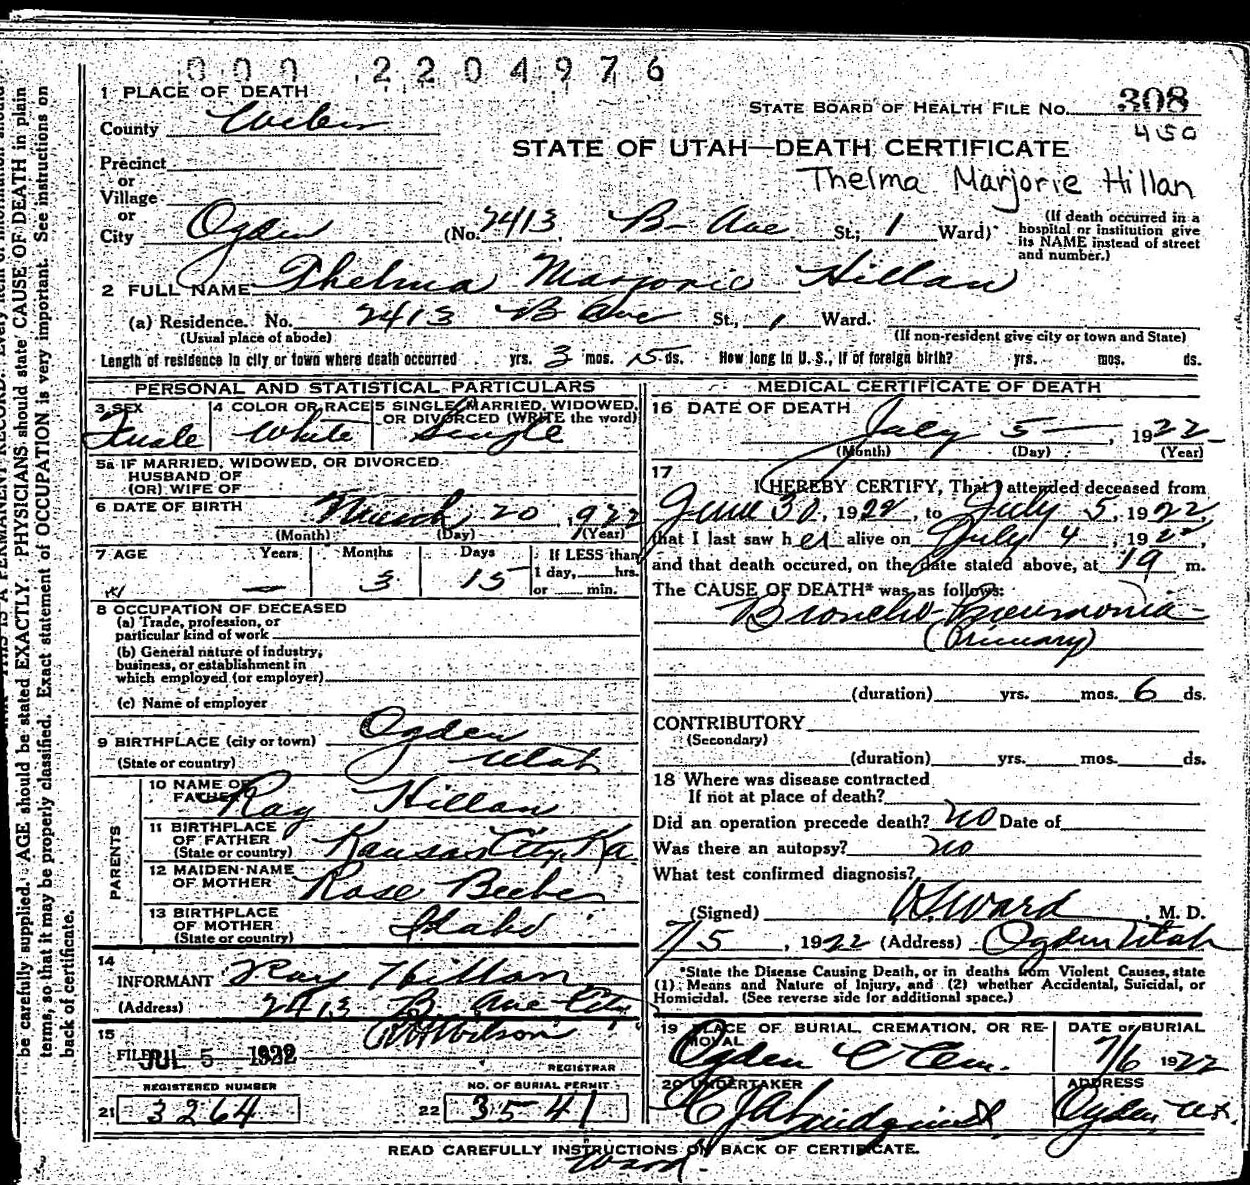 000 2204976
1 PLACE OF DEATH
STATE BOARD OF HEALTH FILE NO. 308
County Weber
450
STATE OF UTAH—DEATH CERTIFICATE
Precinct
or
Thelma Marjorie Hillan
Village
or
City Ogden (No. 2413 B- Ave St.; 1 Ward)
(If death occurred in a hospital or institution give its NAME instead of street and number.)
2 FULL NAME Thelma Marjorie Hillan
(a) Residence. No. 2413 B Ave St., 1 Ward.
(Usual place of abode) (If non-resident give city or town and State)
Length of residence in city or town where death occurred yrs. 3 mos. 15 ds. How long in U. S., if of foreign birth? yrs. mos. ds.
PERSONAL AND STATISTICAL PARTICULARS
3 SEX 4 COLOR OR RACE 5 SINGLE, MARRIED, WIDOWED, OR DIVORCED (WRITE the word)
White Single
5a IF MARRIED, WIDOWED, OR DIVORCED
HUSBAND OF
(OR) WIFE OF
6 DATE OF BIRTH March 20, 1922
(Month) (Day) (Year)
7 AGE Years Months Days If LESS than
1 day, hrs.
— 3 15 or min.
8 OCCUPATION OF DECEASED
(a) Trade, profession, or
particular kind of work
(b) General nature of industry,
business, or establishment in
which employed (or employer)
(c) Name of employer
9 BIRTHPLACE (city or town) Ogden
(State or country) Utah
PARENTS
10 NAME OF
FATHER Ray Hillan
11 BIRTHPLACE
OF FATHER
(State or country) Kansas City, Ka
12 MAIDEN NAME
OF MOTHER Rose Beeber
13 BIRTHPLACE
OF MOTHER
(State or country) Idaho
14
INFORMANT Ray Hillan
(Address) 2413 B Ave City
15
FILED JUL 5 1922
REGISTRAR
REGISTERED NUMBER NO. OF BURIAL PERMIT
21 3264 22 3541
MEDICAL CERTIFICATE OF DEATH
16 DATE OF DEATH
July 5—, 1922
(Month) (Day) (Year)
17
I HEREBY CERTIFY, That I attended deceased from
June 30, 1922, to July 5, 1922,
that I last saw her alive on July 4, 1922,
and that death occured, on the date stated above, at m.
The CAUSE OF DEATH* was as follows:
Broncho-Pneumonia
(Primary)
(duration) yrs. mos. 6 ds.
CONTRIBUTORY
(Secondary)
(duration) yrs. mos. ds.
18 Where was disease contracted
If not at place of death?
Did an operation precede death? no Date of
Was there an autopsy? no
What test confirmed diagnosis?
(Signed) Ward, M. D.
7/5, 1922 (Address) Ogden Utah
*State the Disease Causing Death, or in deaths from Violent Causes, state
(1) Means and Nature of Injury, and (2) whether Accidental, Suicidal, or
Homicidal. (See reverse side for additional space.)
19 PLACE OF BURIAL, CREMATION, OR RE-
MOVAL DATE OF BURIAL
Ogden C Cem. 7/6 1922
20 UNDERTAKER ADDRESS
Ogden Ut.
READ CAREFULLY INSTRUCTIONS ON BACK OF CERTIFICATE.
Ward
be carefully supplied. AGE should be stated EXACTLY. PHYSICIANS should state CAUSE OF DEATH in plain
terms, so that it may be properly classified. Exact statement of OCCUPATION is very important. See instructions on
back of certificate.